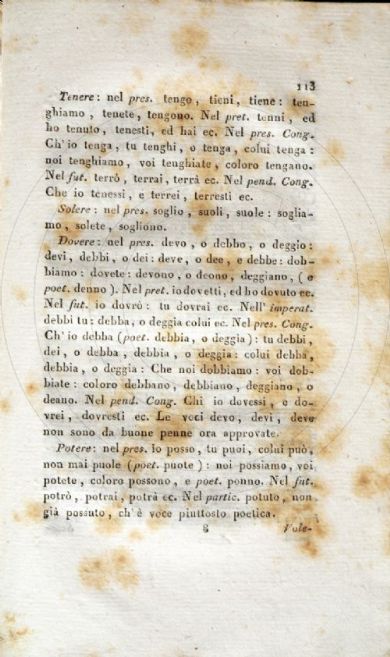 113
Tenere: nel pres. tengo, tieni, tiene: ten-
ghiamo, tenete, tengono. Nel pret. tenni, ed
ho tenuto, tenesti, ed hai ec. Nel pres. Cong.
Ch' io tenga, tu tenghi, o tenga, colui tenga:
noi tenghiamo, voi tenghiate, coloro tengano.
Nel fut. terrò, terrai, terrà ec. Nel pend. Cong.
Che io tenessi, e terrei, terresti ec.
Solere: nel pres. soglio, suoli, suole: soglia-
mo, solete, sogliono.
Dovere: nel pres. devo, o debbo, o deggio:
devi, debbi, o dei: deve, o dee, e debbe: dob-
biamo: dovete: devono, o deono, deggiano, (e
poet. denno). Nel pret. io dovetti, ed ho dovuto ec.
Nel fut. io dovrò: tu dovrai ec. Nell' imperat.
debbi tu: debba, o deggia colui ec. Nel pres. Cong.
Ch' io debba (poet. debbia, o deggia): tu debbi,
dei, o debba, debbia, o deggia: colui debba,
debbia, o deggia: Che noi dobbiamo: voi dob-
biate: coloro debbano, debbiano, deggiano, o
deano. Nel pend. Cong. Chi io dovessi, e do-
vrei, dovresti ec. Le voci devo, devi, deve
non sono da buone penne ora approvate.
Potere: nel pres. io posso, tu puoi, colui può,
non mai puole (poet. puote): noi possiamo, voi
potete, coloro possono, e poet. ponno. Nel fut.
potrò, potrai, potrà ec. Nel partic. potuto, non
già possuto, ch' è voce piuttosto poetica.
8 Vole-